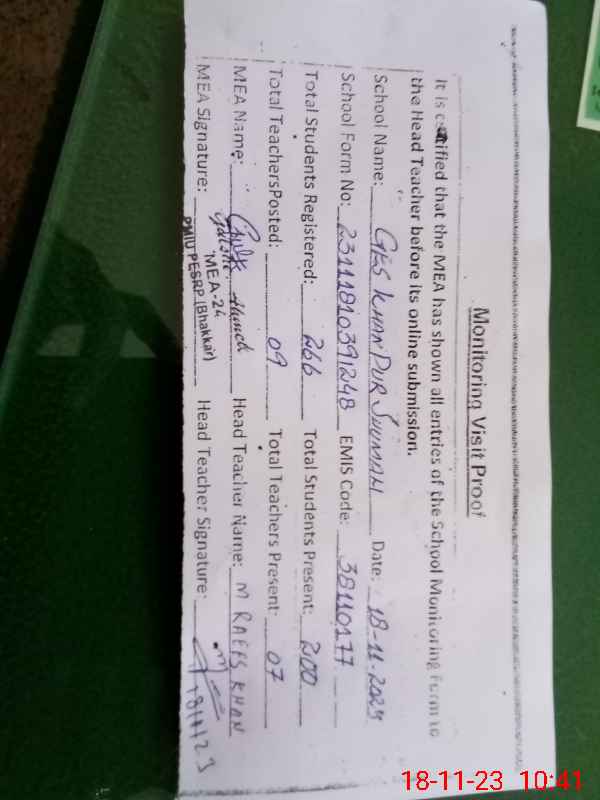 Monitoring Visit Proof
It is certified that the MEA has shown all entries of the School Monitoring Form to
the Head Teacher before its online submission.
School Name: GES KHANPUR SHUMALI Date: 18-11-2023
School Form No: 23111810391248 EMIS Code: 38110177
Total Students Registered: 266 Total Students Present: 200
Total TeachersPosted: 09 Total Teachers Present: 07
MEA Name: Ahmed Head Teacher Name: M RAEES KHAN
MEA Signature: Head Teacher Signature:
MEA-24
PMIU PESRP (Bhakkar)
18/11/23
18-11-23 10:41